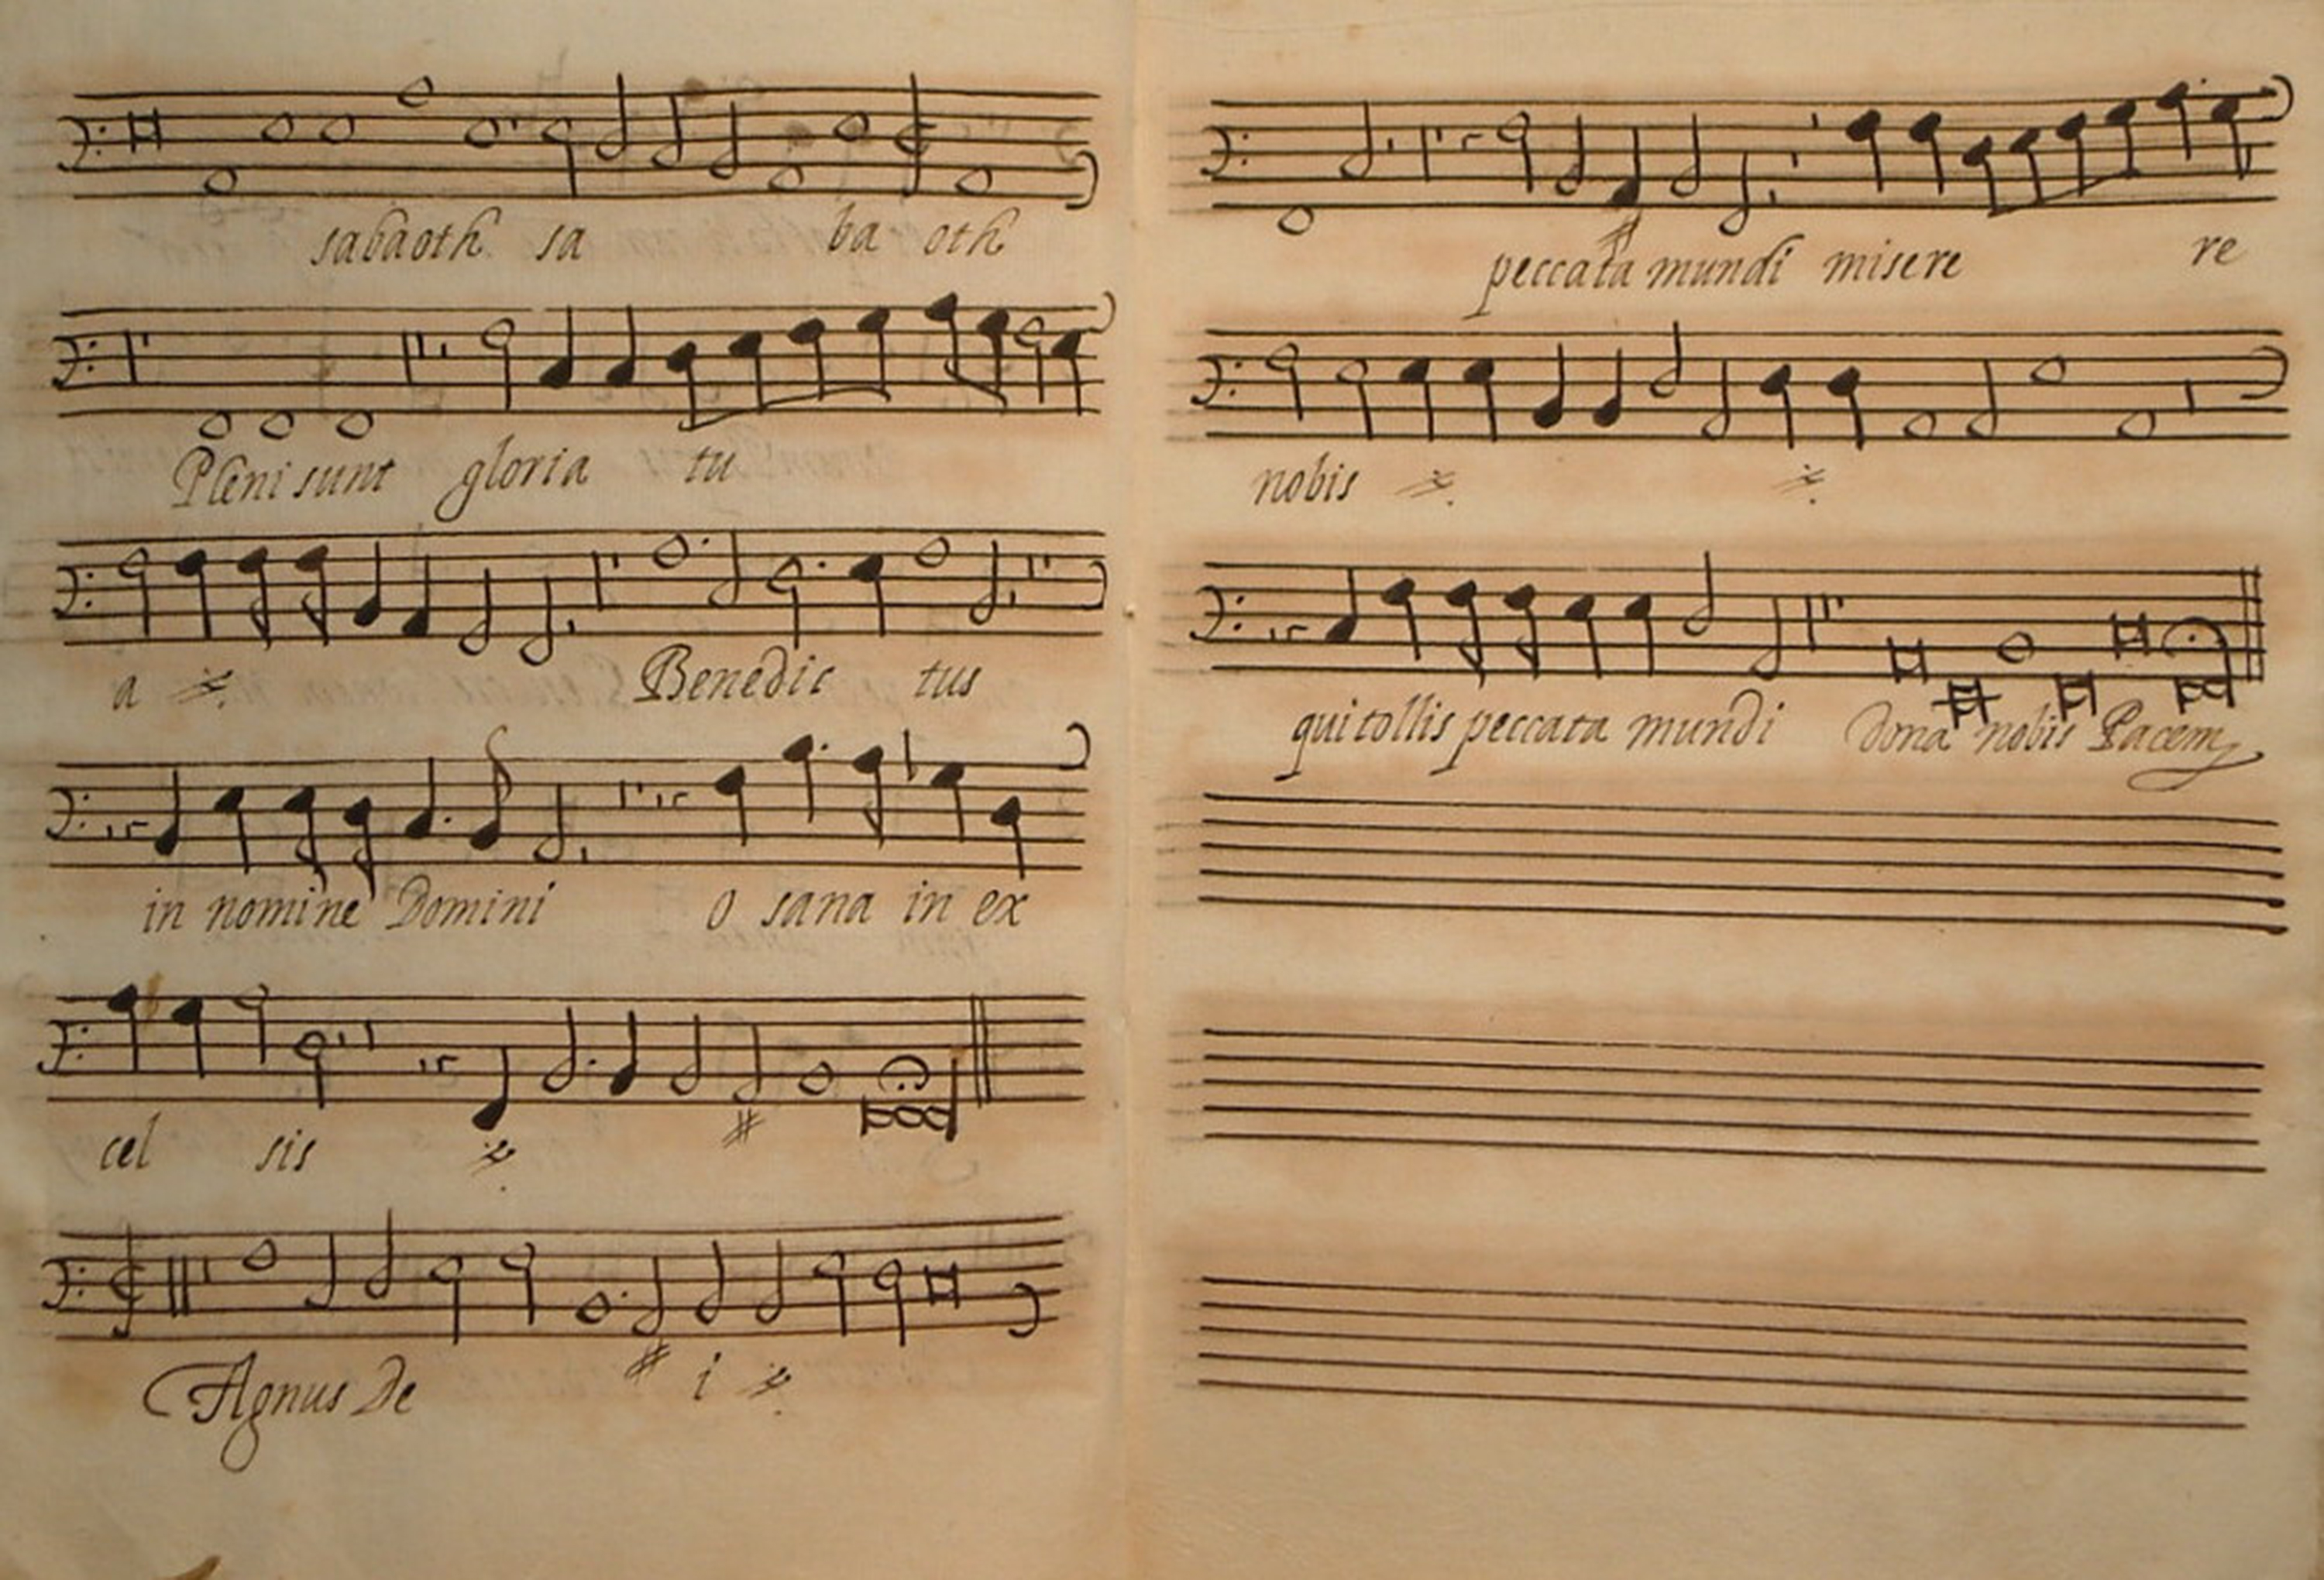 sabaoth sa ba oth
Pleni sunt gloria tu
a Benedic tus
in nomine Domini O sana in ex
cel sis
Agnus De i
peccata mundi misere re
nobis
qui tollis peccata mundi dona nobis Pacem